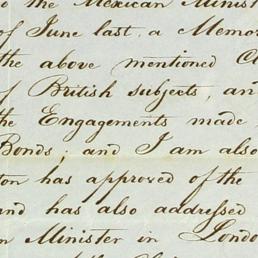 to the Mexican Minist
of June last, a Memor
the above mentioned Cl
of British subjects, an
the Engagements made
Bonds; and I am also
ton has approved of the
and has also addressed
n Minister in Londo